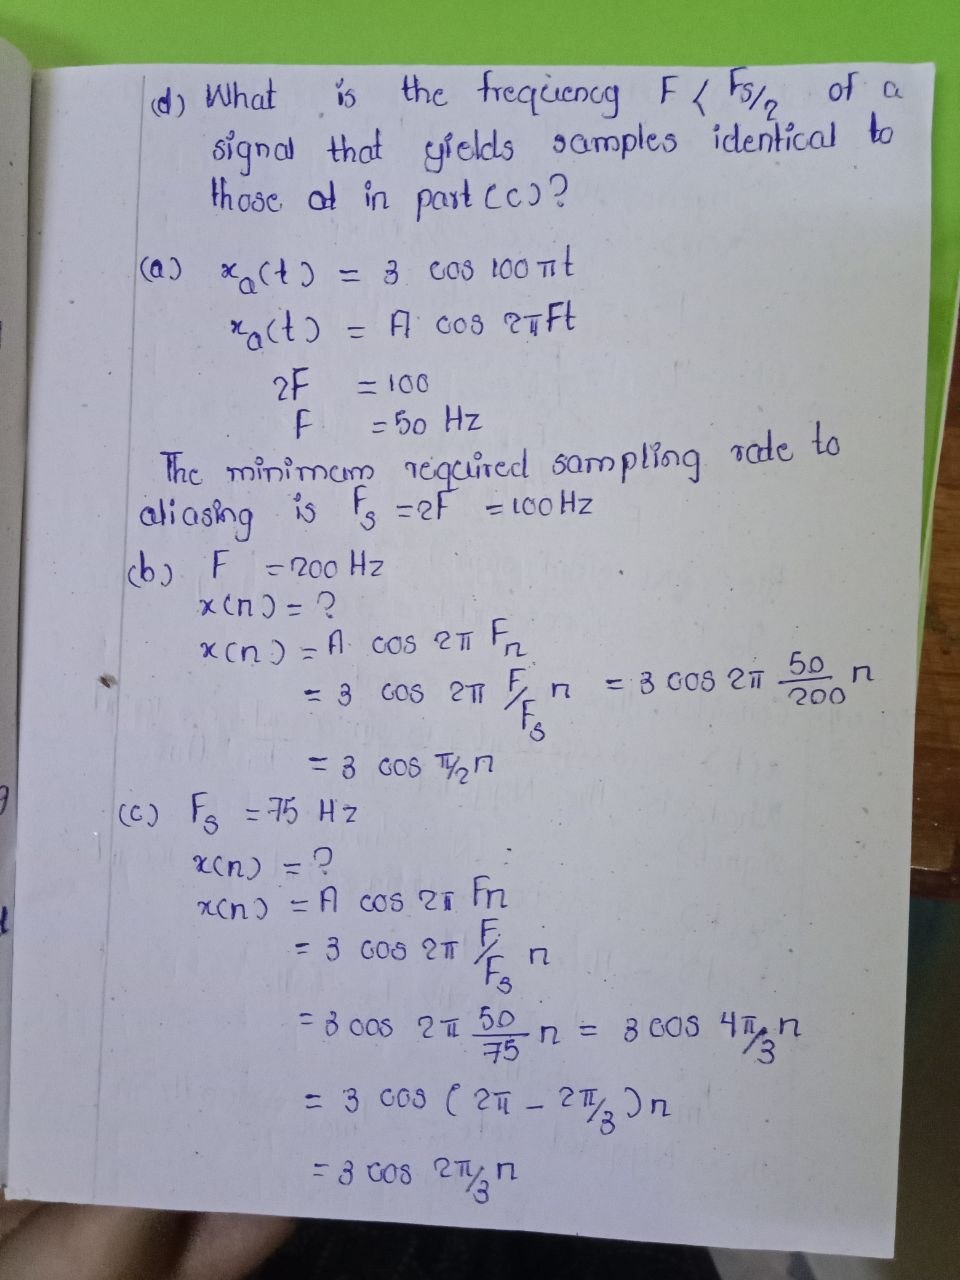 (d) What is the frequency F < Fs/2 of a
signal that yields samples identical to
those at in part (c)?
(a) xₐ(t) = 3 cos 100 πt
xₐ(t) = A cos 2πFt
2F = 100
F = 50 Hz
The minimum required sampling rate to
aliasing is Fs = 2F = 100 Hz
(b) F = 200 Hz
x(n) = ?
x(n) = A cos 2π Fn
= 3 cos 2π F/Fs n = 3 cos 2π 50/200 n
= 3 cos π/2 n
(c) Fs = 75 Hz
x(n) = ?
x(n) = A cos 2π Fn
= 3 cos 2π F/Fs n
= 3 cos 2π 50/75 n = 3 cos 4π/3 n
= 3 cos (2π - 2π/3) n
= 3 cos 2π/3 n